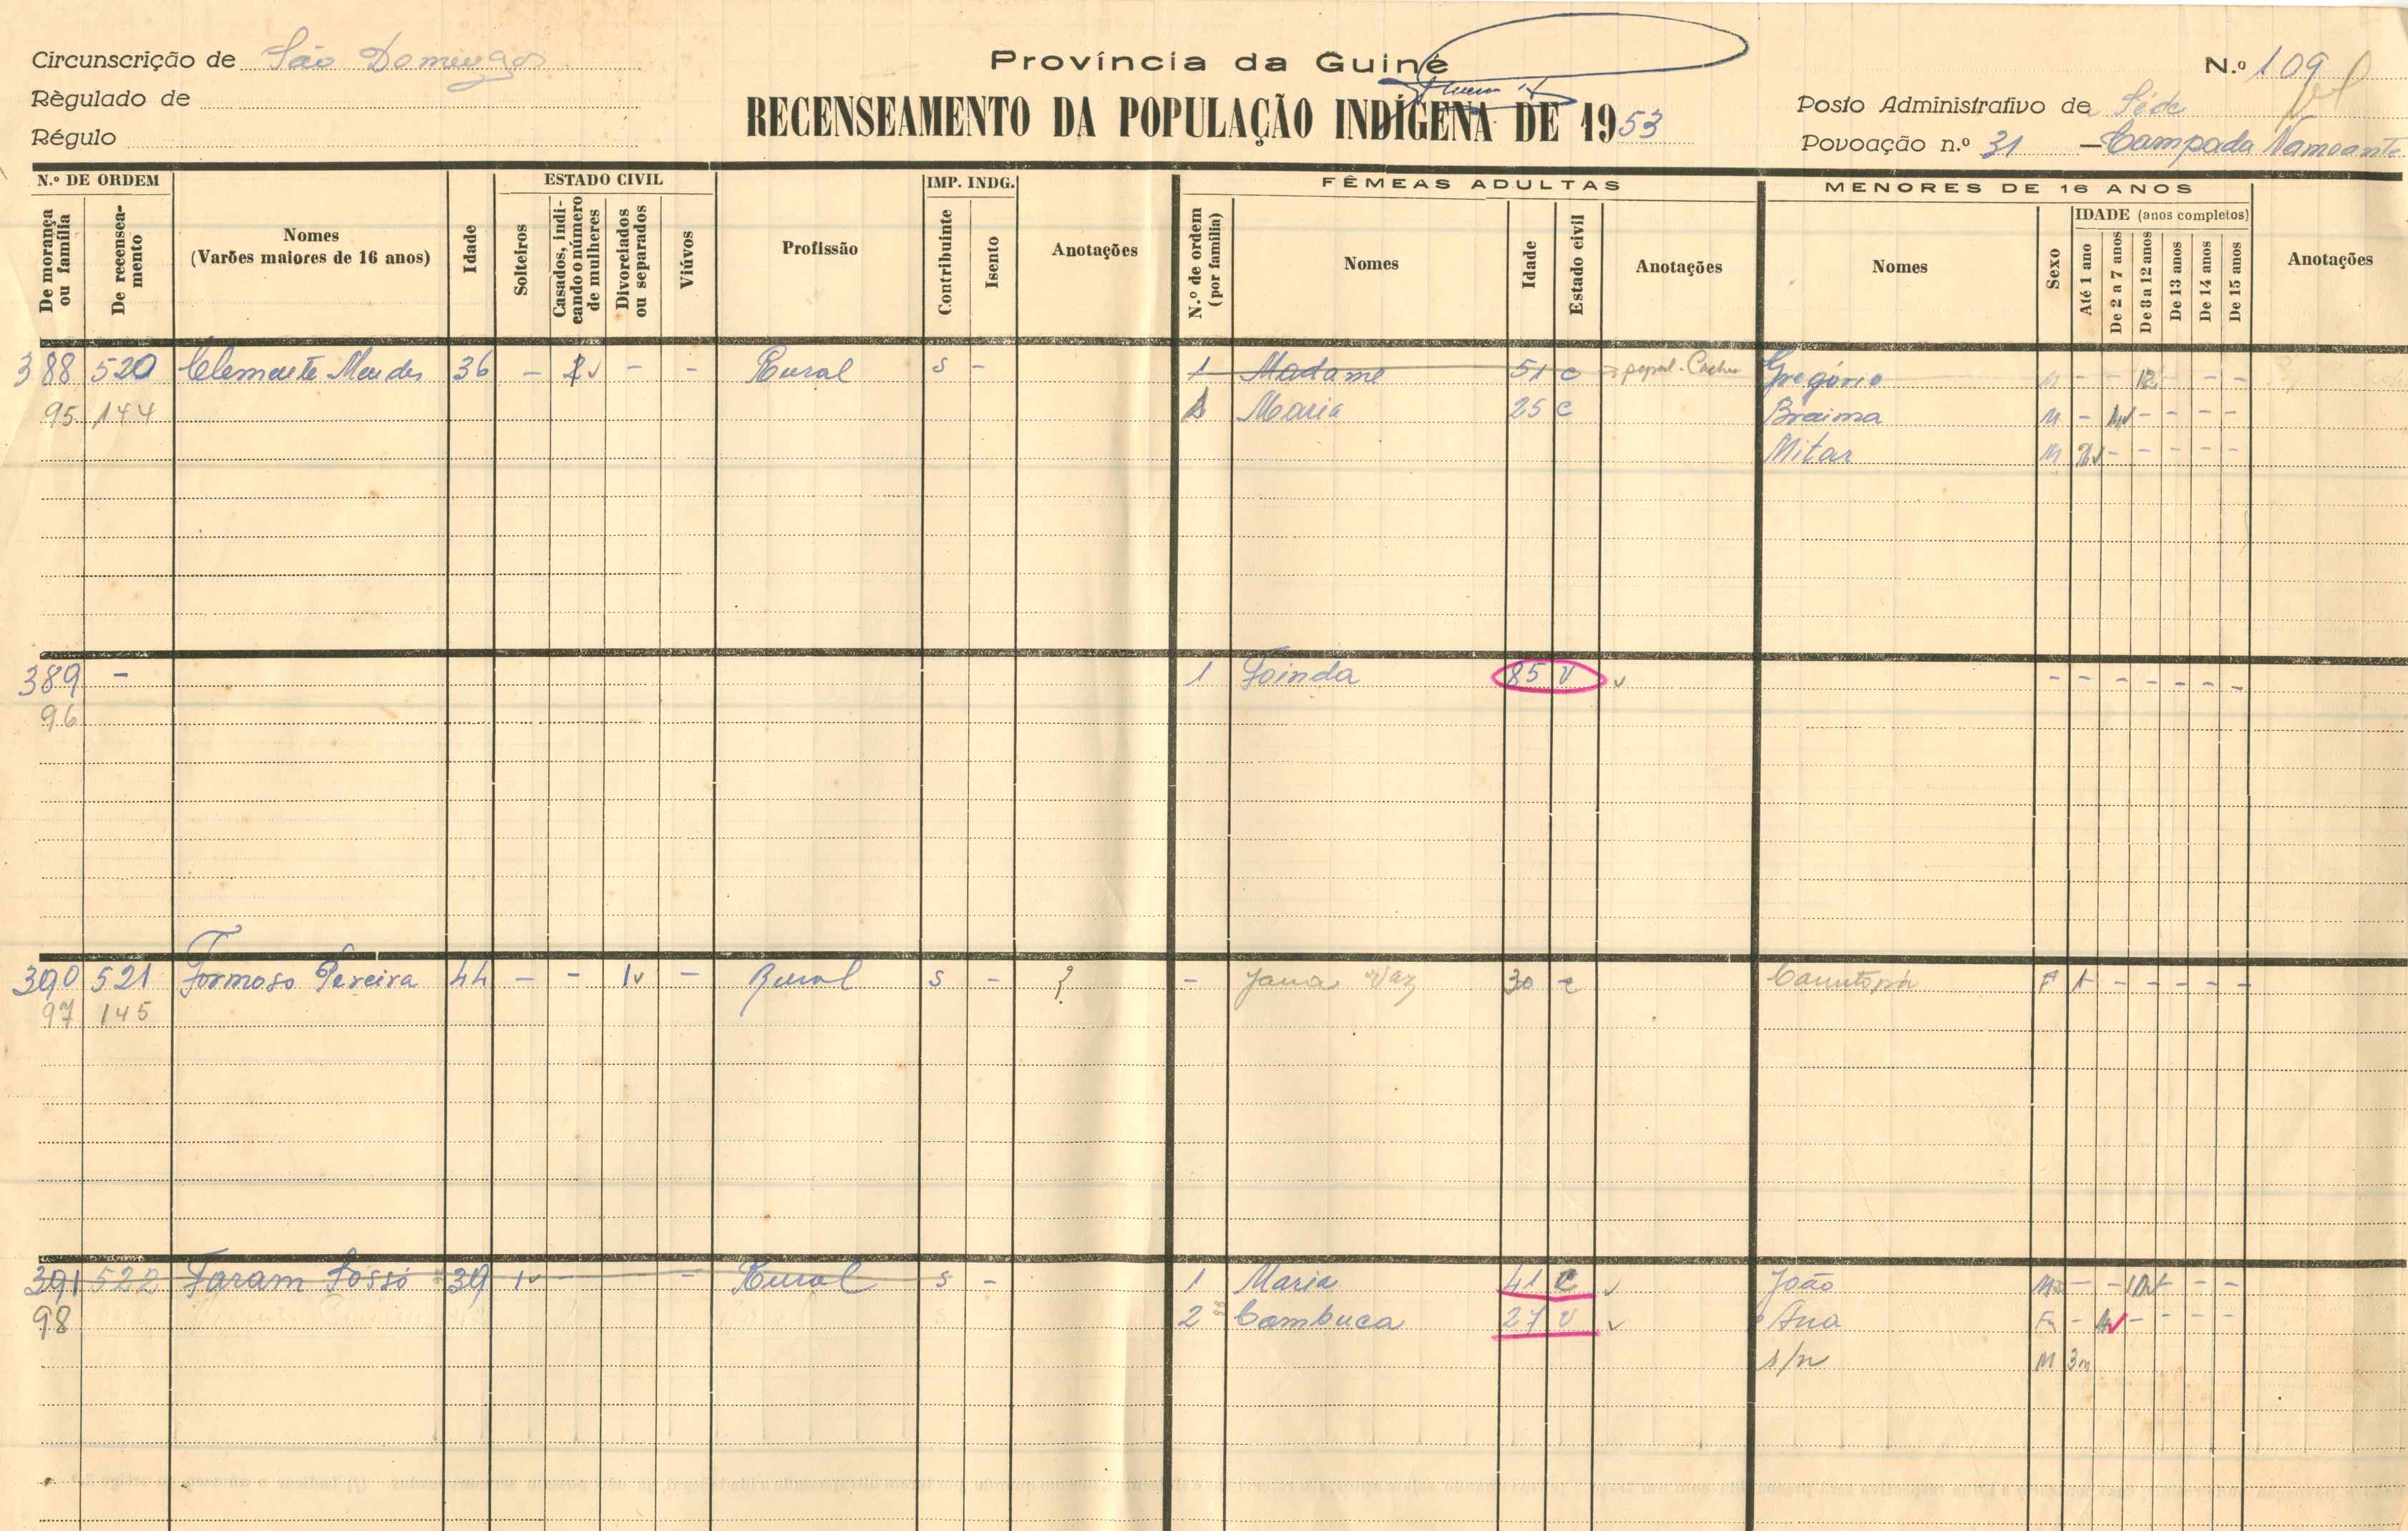 Circunscrição de São Domingos
Província da Guiné
N.º 109
Règulado de
RECENSEAMENTO DA POPULAÇÃO INDÍGENA DE 1953
Posto Administrativo de Séde
Régulo
Povoação n.º 31 — Campada Namoante
N.º DE ORDEM
ESTADO CIVIL
IMP. INDG.
FÊMEAS ADULTAS
MENORES DE 16 ANOS
De morança ou família
De recenseamento
Nomes
(Varões maiores de 16 anos)
Idade
Solteiros
Casados, indicando o número de mulheres
Divorciados ou separados
Viúvos
Profissão
Contribuinte
Isento
Anotações
N.º de ordem (por família)
Nomes
Idade
Estado civil
Anotações
Nomes
Sexo
IDADE (anos completos)
Até 1 ano
De 2 a 7 anos
De 8 a 12 anos
De 13 anos
De 14 anos
De 15 anos
Anotações
388 520 Clemente Mendes 36 - - - Rural s - 1 Madame 51 c Gregório M - - 12 - - -
95 144 Maria 25 c Braima M - - - - -
Mitar M - - - - -
389 - 1 Foinda 85 V - - - - - - -
96
390 521 Formoso Pereira 44 - - 1 - Rural s - ? - Jana Vaz 30 c F 1 - - - - -
97 145
391 522 Faram Sossó 39 1 - Rural s - 1 Maria 41 C João M - - 10 - -
98 2 Cambuca 27 V Ana F - - - - -
s/n M 3m